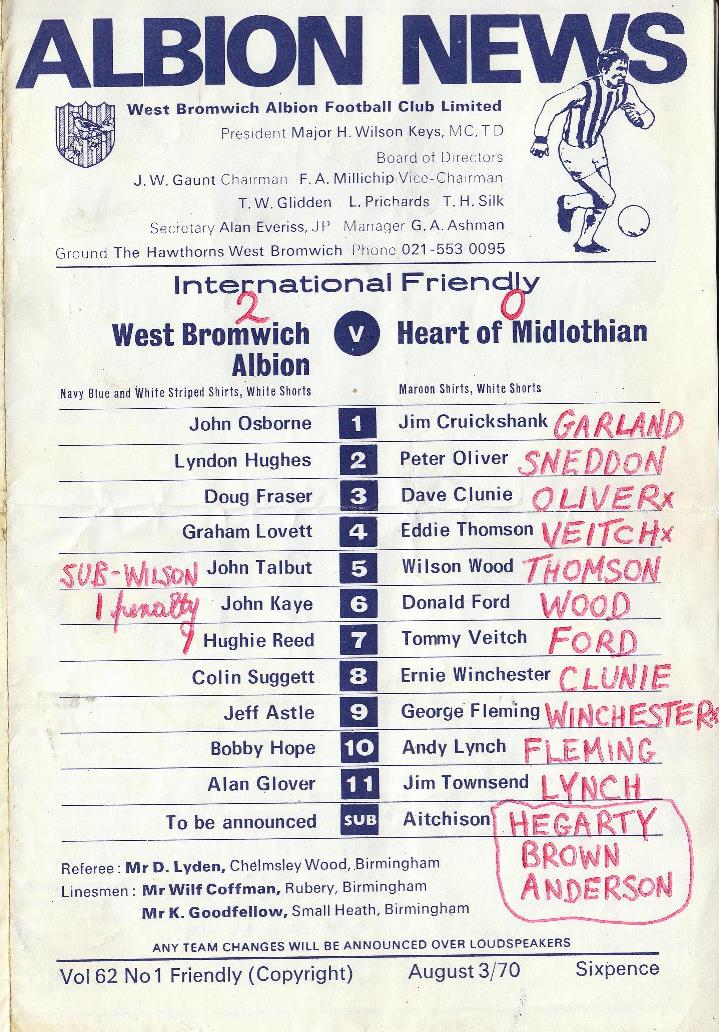 ALBION NEWS
West Bromwich Albion Football Club Limited
President Major H. Wilson Keys, MC, TD
Board of Directors
J. W. Gaunt Chairman F. A. Millichip Vice-Chairman
T. W. Glidden L. Prichards T. H. Silk
Secretary Alan Everiss, JP Manager G. A. Ashman
Ground The Hawthorns West Bromwich Phone 021-553 0095
International Friendly
2 0
West Bromwich Albion V Heart of Midlothian
Navy Blue and White Striped Shirts, White Shorts Maroon Shirts, White Shorts
John Osborne 1 Jim Cruickshank GARLAND
Lyndon Hughes 2 Peter Oliver SNEDDON
Doug Fraser 3 Dave Clunie OLIVER x
Graham Lovett 4 Eddie Thomson VEITCH x
SUB-WILSON John Talbut 5 Wilson Wood THOMSON
1 penalty John Kaye 6 Donald Ford WOOD
Hughie Reed 7 Tommy Veitch FORD
Colin Suggett 8 Ernie Winchester CLUNIE
Jeff Astle 9 George Fleming WINCHESTER x
Bobby Hope 10 Andy Lynch FLEMING
Alan Glover 11 Jim Townsend LYNCH
To be announced SUB Aitchison HEGARTY
BROWN
ANDERSON
Referee : Mr D. Lyden, Chelmsley Wood, Birmingham
Linesmen : Mr Wilf Coffman, Rubery, Birmingham
Mr K. Goodfellow, Small Heath, Birmingham
ANY TEAM CHANGES WILL BE ANNOUNCED OVER LOUDSPEAKERS
Vol 62 No 1 Friendly (Copyright) August 3/70 Sixpence